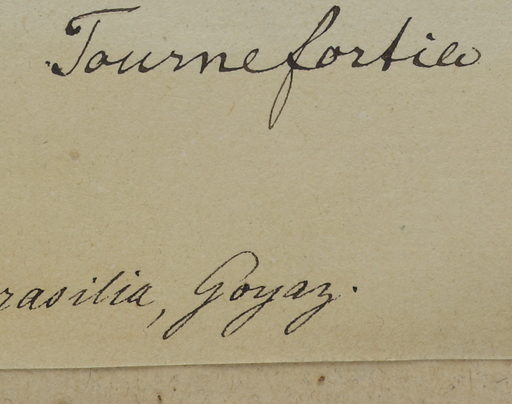 Tournefortia
rasilia, Goyaz.